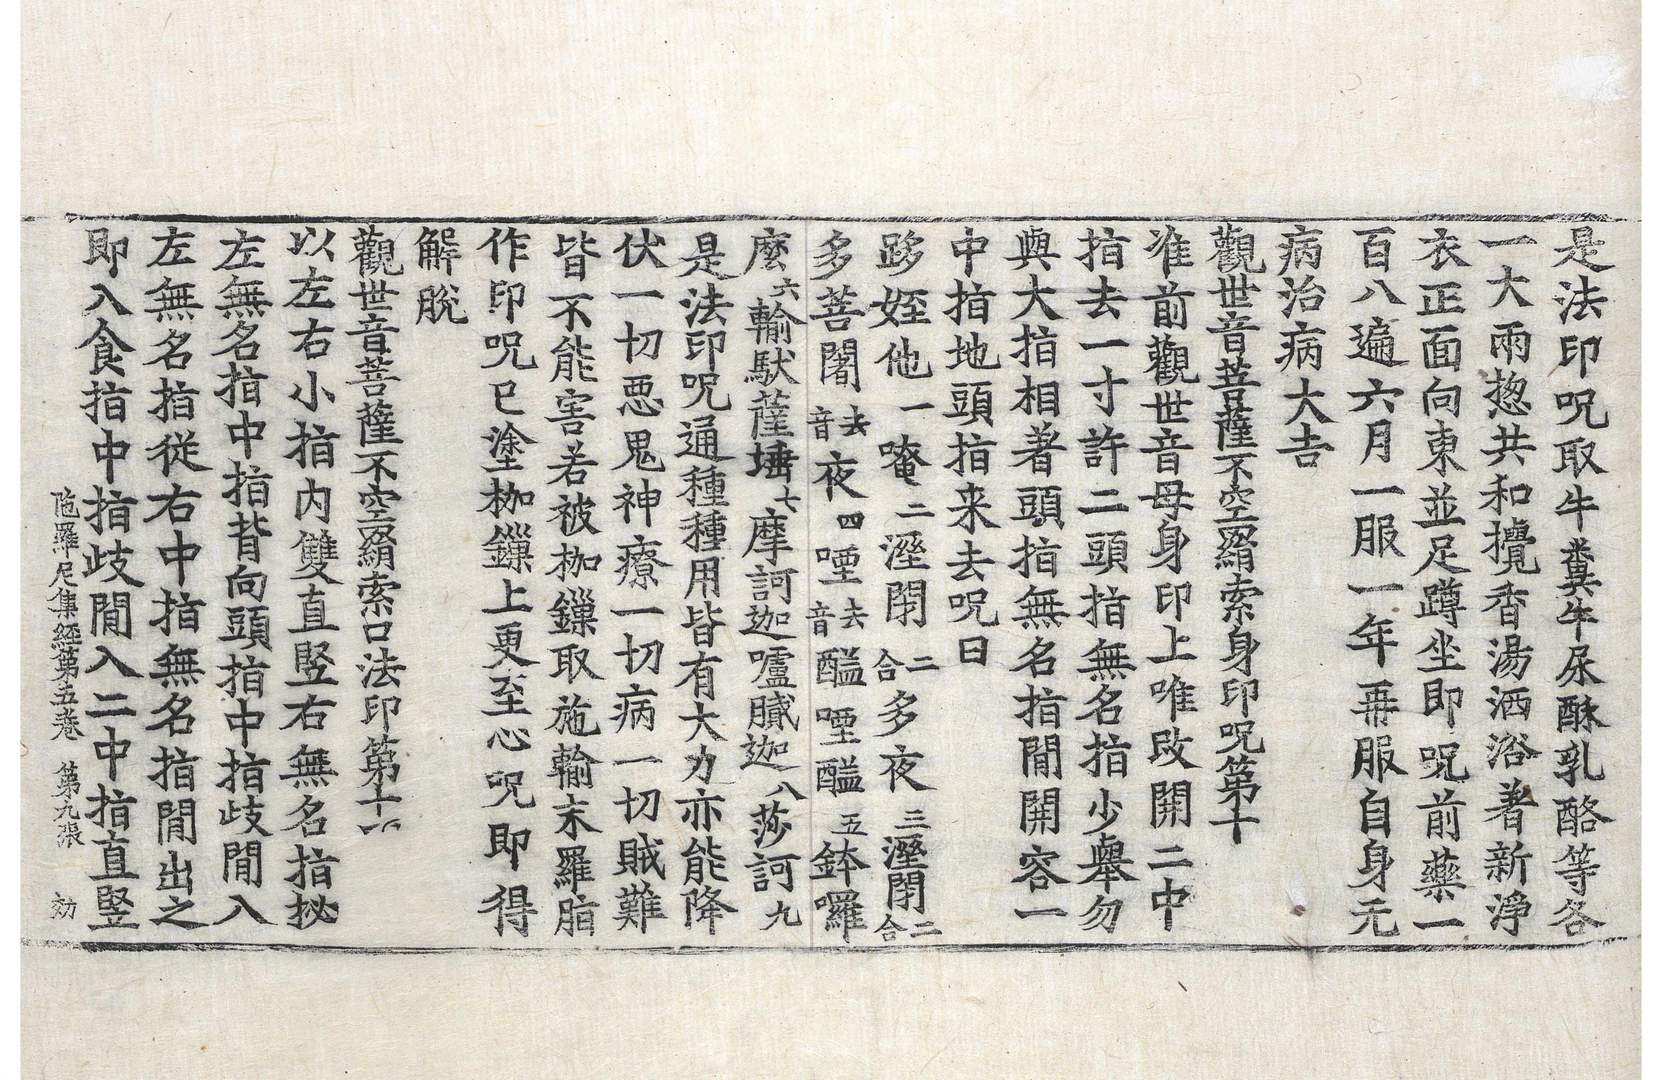 是法印呪取牛糞牛尿酥乳酪等各
一大兩惣共和攪香湯洒浴著新淨
衣正面向東並足蹲坐即呪前藥一
百八遍六月一服一年再服自身无
病治病大吉
觀世音菩薩不空羂索身印呪第十
准前觀世音母身印上唯改開二中
指去一寸許二頭指無名指少舉勿
與大指相著頭指無名指閒開容一
中指地頭指来去呪曰
跢姪他一唵二溼閇二合多夜三溼閇二合
多菩闍去音夜四堙去音醯堙醯五鉢囉
麼六輸馱薩埵七摩訶迦嚧膩迦八莎訶九
是法印呪通種種用皆有大力亦能降
伏一切惡鬼神療一切病一切賊難
皆不能害若被枷鏁取施輸末羅脂
作印呪已塗枷鏁上更至心呪即得
解脫
觀世音菩薩不空羂索口法印第十一
以左右小指内雙直竪右無名指拟
左無名指中指背向頭指中指歧閒入
左無名指從右中指無名指閒出之
即入食指中指歧閒入二中指直竪
陁羅尼集經第五卷 第九張 効